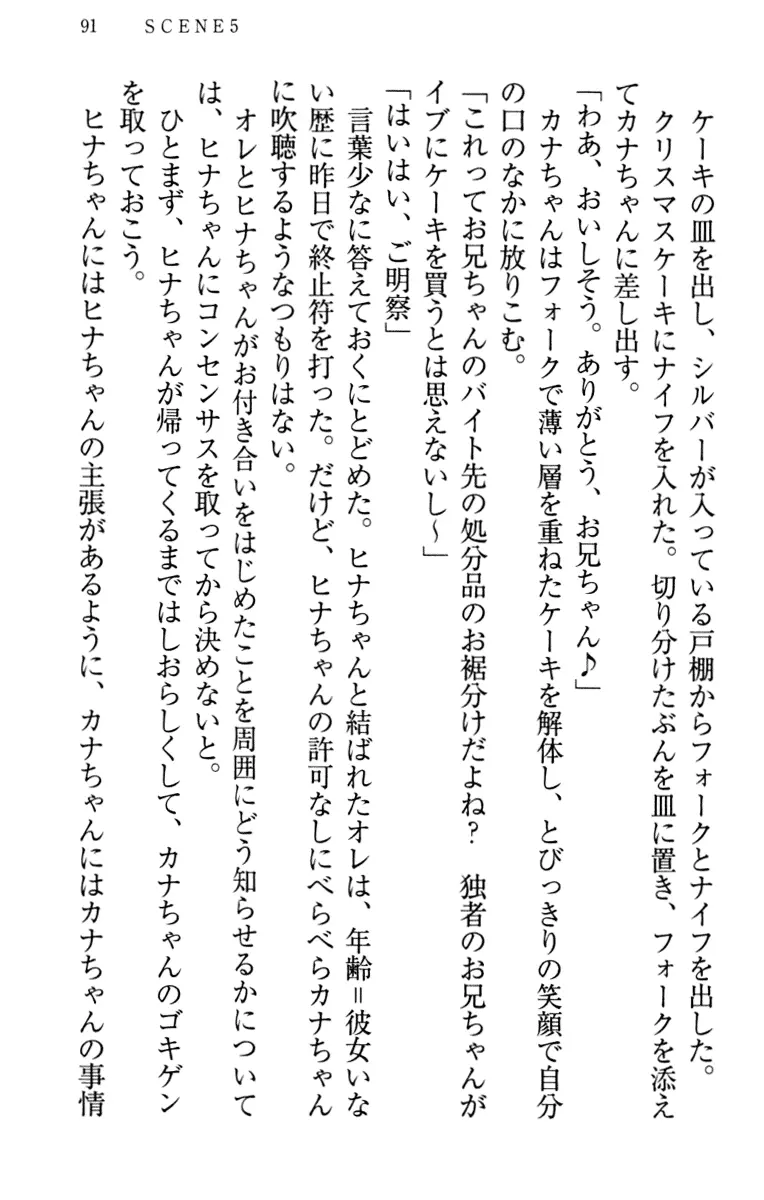 91　SCENE5
　ケーキの皿を出し、シルバーが入っている戸棚からフォークとナイフを出した。
　クリスマスケーキにナイフを入れた。切り分けたぶんを皿に置き、フォークを添え
てカナちゃんに差し出す。
「わあ、おいしそう。ありがとう、お兄ちゃん♪」
　カナちゃんはフォークで薄い層を重ねたケーキを解体し、とびっきりの笑顔で自分
の口のなかに放りこむ。
「これってお兄ちゃんのバイト先の処分品のお裾分けだよね？　独者のお兄ちゃんが
イブにケーキを買うとは思えないし～」
「はいはい、ご明察」
　言葉少なに答えておくにとどめた。ヒナちゃんと結ばれたオレは、年齢＝彼女いな
い歴に昨日で終止符を打った。だけど、ヒナちゃんの許可なしにべらべらカナちゃん
に吹聴するようなつもりはない。
　オレとヒナちゃんがお付き合いをはじめたことを周囲にどう知らせるかについて
は、ヒナちゃんにコンセンサスを取ってから決めないと。
　ひとまず、ヒナちゃんが帰ってくるまではしおらしくして、カナちゃんのゴキゲン
を取っておこう。
　ヒナちゃんにはヒナちゃんの主張があるように、カナちゃんにはカナちゃんの事情